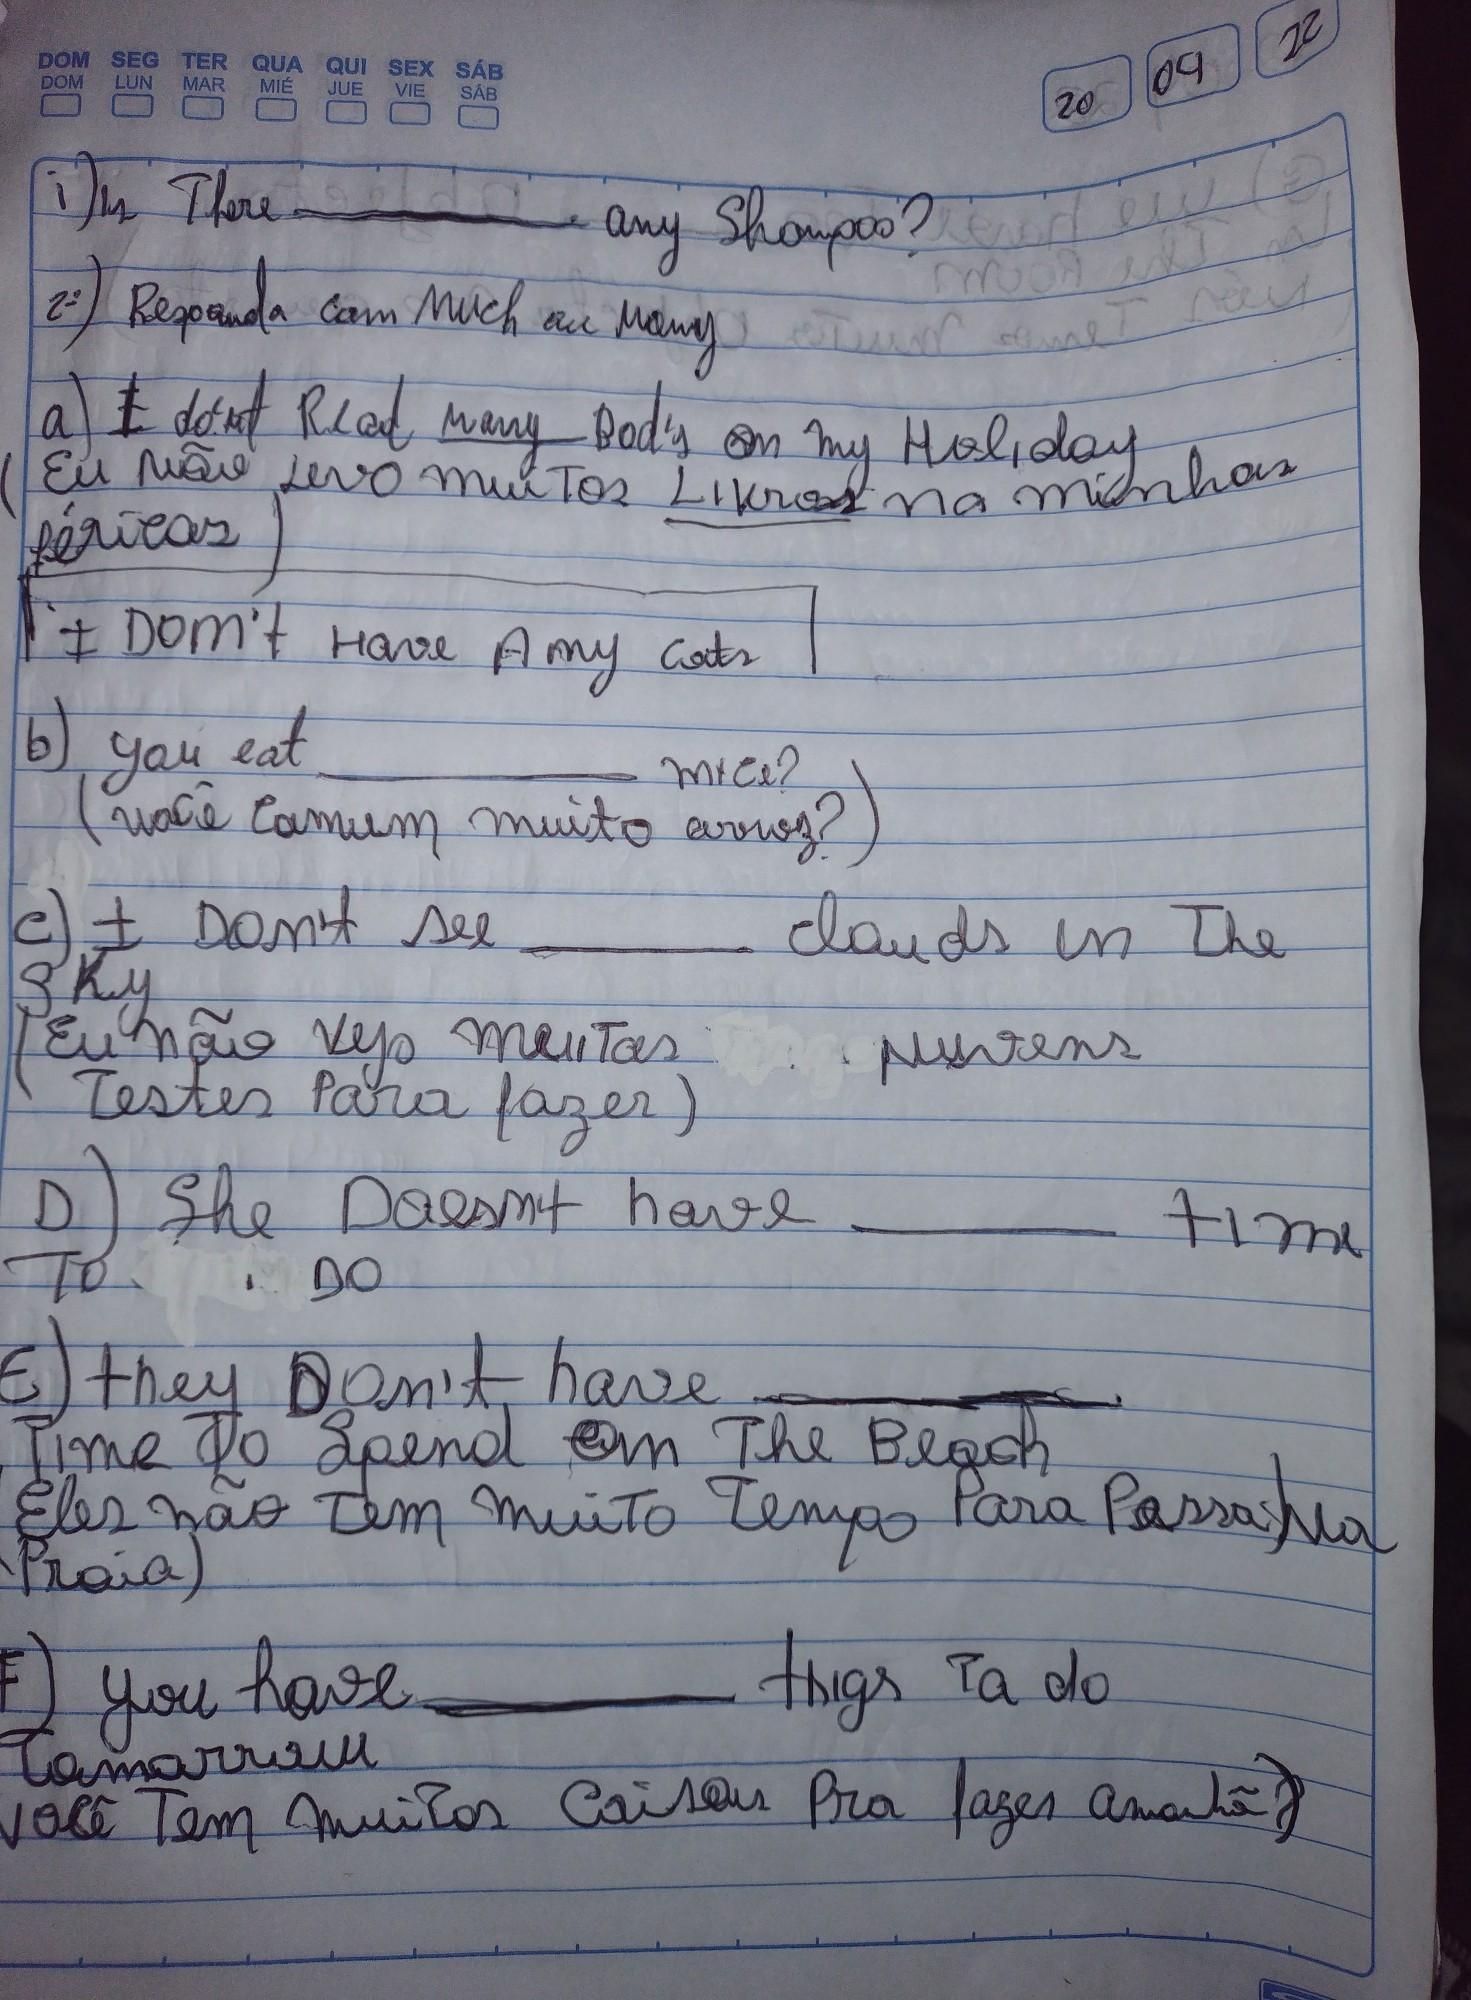 DOM SEG TER QUA QUI SEX SÁB
DOM LUN MAR MIÉ JUE VIE SÁB
20 09 22
i) Is There any Shampoo?
2º) Responda com Much ou Many
a) I don't Read many on my Holiday
(Eu não levo muitos na minhas
féricas)
I DOM't Have Amy cats
b) you eat mice?
(você comum muito arroz?)
c) I DOn't see clouds in The
SKy
(Eu não vejo muitas nuvens
Testes Para fazer)
D) She Doesn't have time
To DO
E) they Don't have
Time To Spend on The Beach
Eles não Tem muito Tempo Para Passa Na
Praia)
F) you have thigs To do
Tomorrow
você Tem muitos Coisas Pra fazer amanhã)